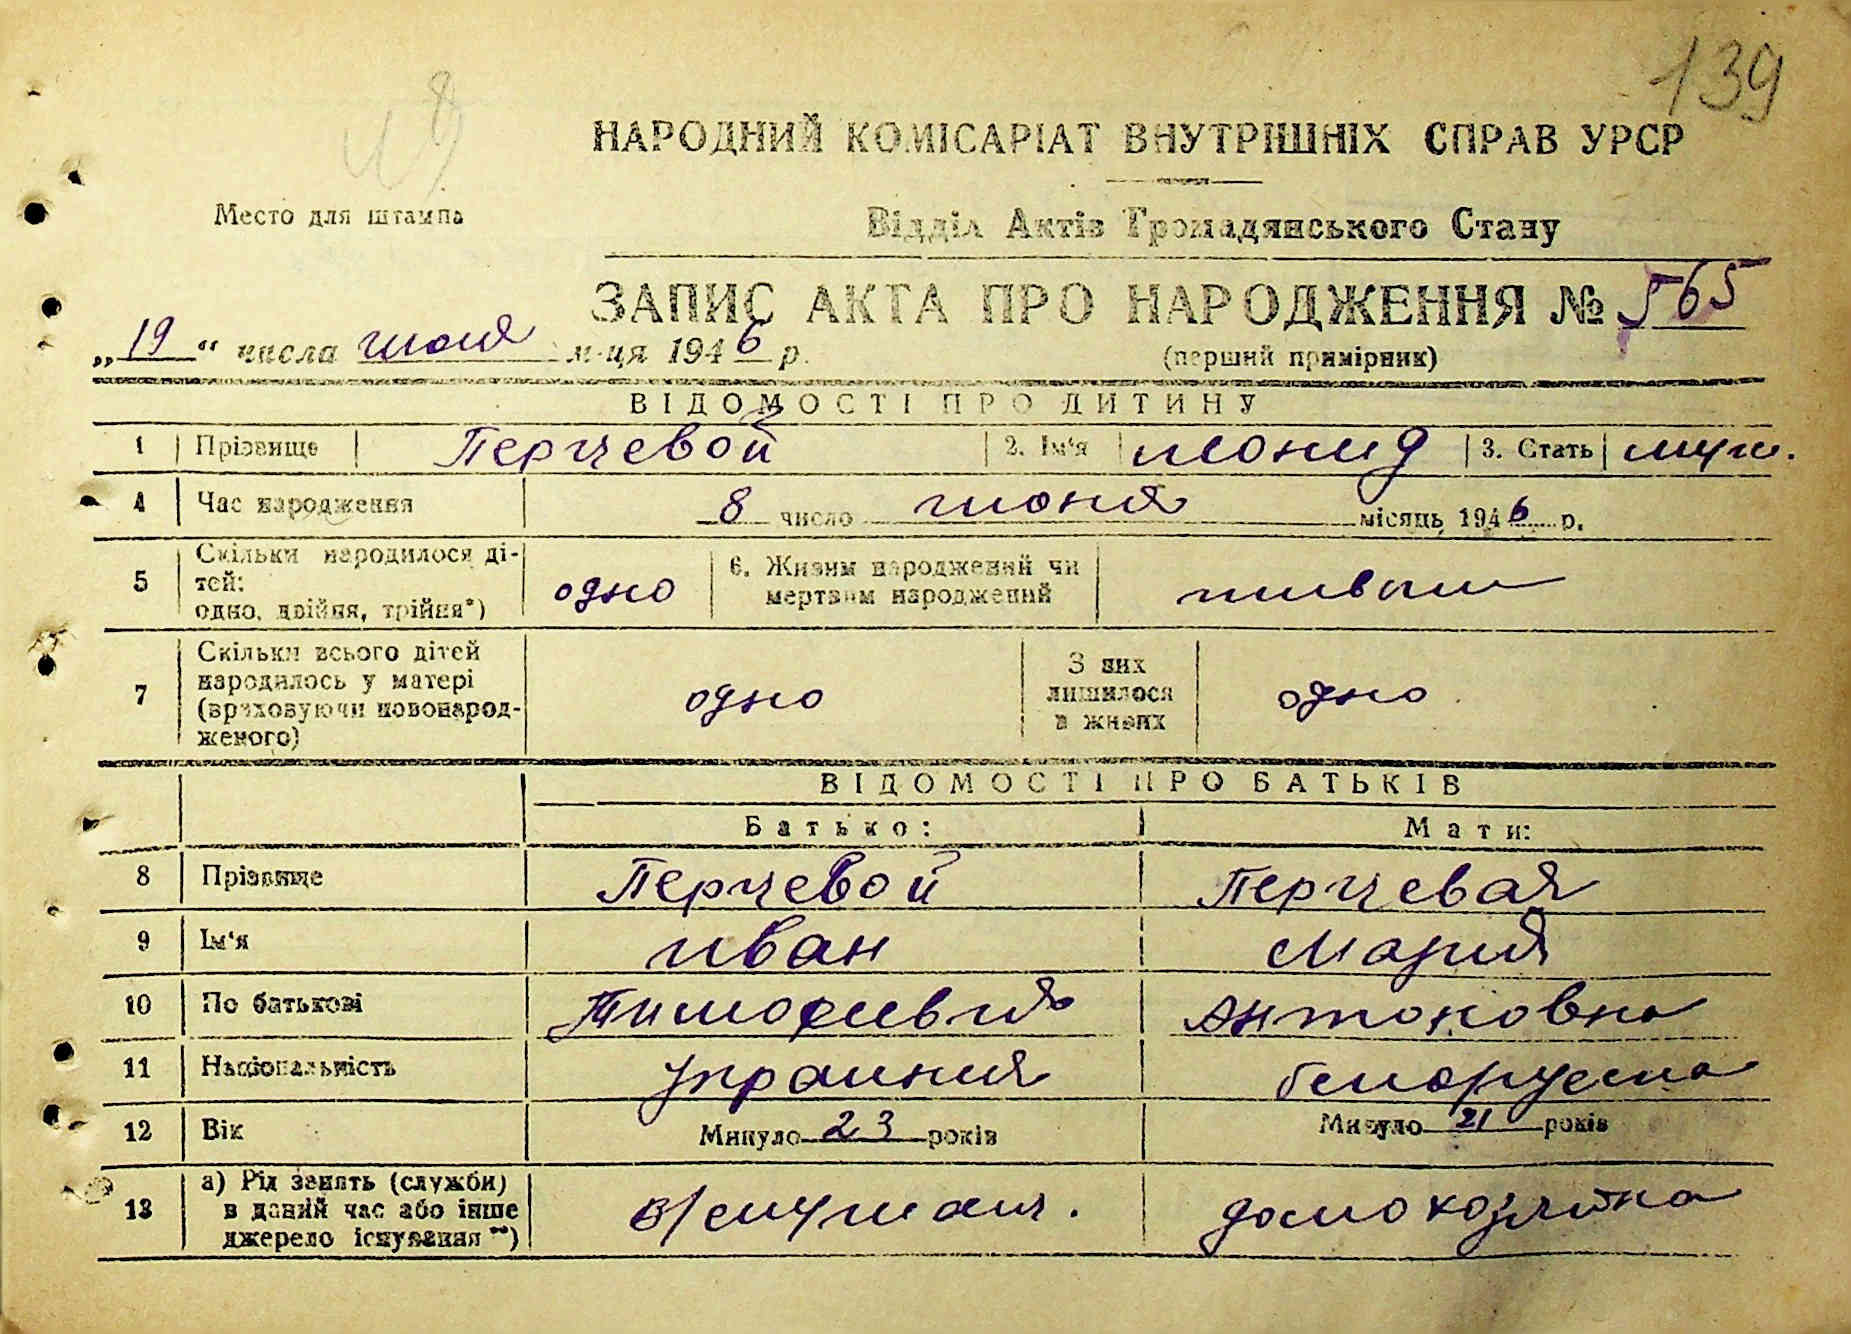 139
НАРОДНИЙ КОМІСАРІАТ ВНУТРІШНІХ СПРАВ УРСР
Место для штампа
Відділ Актів Громадянського Стану
ЗАПИС АКТА ПРО НАРОДЖЕННЯ № 565
„19“ числа июня м-ця 1946 р.
(перший примірник)
ВІДОМОСТІ ПРО ДИТИНУ
1 Прізвище Перчевой 2. Ім'я Леонид 3. Стать муж.
4 Час народження 8 число июня місяць 1946 р.
5 Скільки народилося ді-
тей:
одно, двійня, трійня*) одно 6. Живим народжений чи
мертвим народжений живым
7 Скільки всього дітей
народилось у матері
(враховуючи новонарод-
женого) одно З них
лишилося
в живих одно
ВІДОМОСТІ ПРО БАТЬКІВ
Батько: Мати:
8 Прізвище Перчевой Перчевая
9 Ім'я Иван Мария
10 По батькові Тимофеевич Антоновна
11 Національність украинец белоруска
12 Вік Минуло 23 років Минуло 21 років
13 а) Рід занять (служби)
в даний час або інше
джерело існування **) в/служащ. домохозяйка